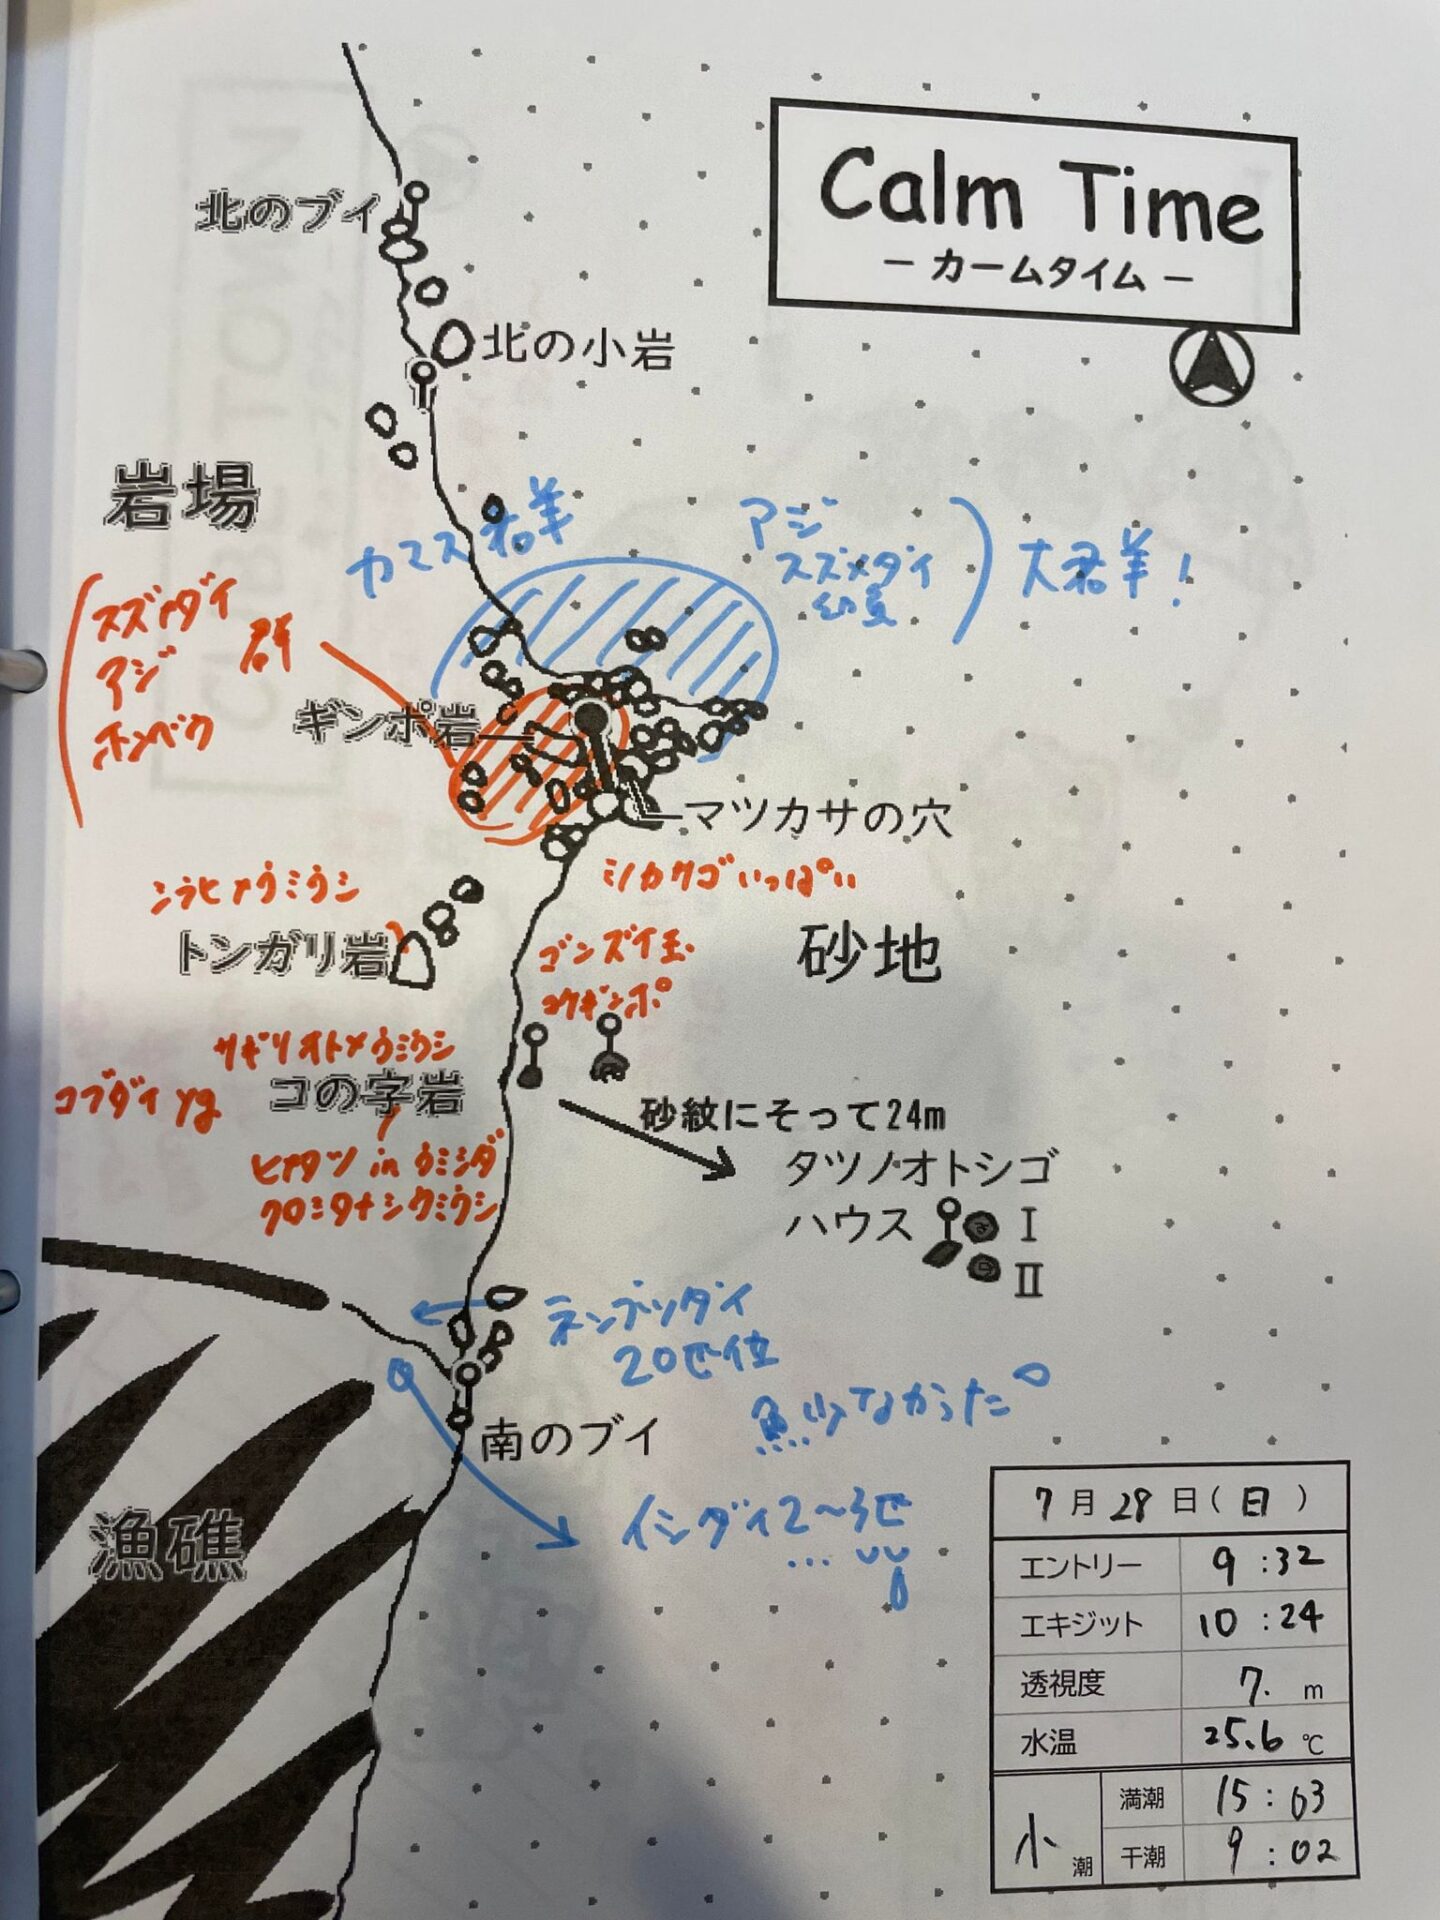 Calm Time
－ カームタイム －
北のブイ
北の小岩
岩場
カマス群
アジ
スズメダイ
幼魚
大群！
スズメダイ
アジ
ホンベラ
群
ギンポ岩
マツカサの穴
ミノカサゴいっぱい
シラヒメウミウシ
トンガリ岩
ゴンズイ玉
コケギンポ
砂地
サギリオトメウミウシ
コブダイ yg
コの字岩
砂紋にそって24m
タツノオトシゴ
ハウス
Ⅰ
Ⅱ
ヒメタツ in ウミシダ
クロミタナシウミウシ
ネンブツダイ
20匹位
魚少なかった。
南のブイ
イシダイ2～3匹
…
漁礁
7月28日（日）
エントリー 9:32
エキジット 10:24
透視度 7. m
水温 25.6 ℃
小潮
満潮 15:03
干潮 9:02